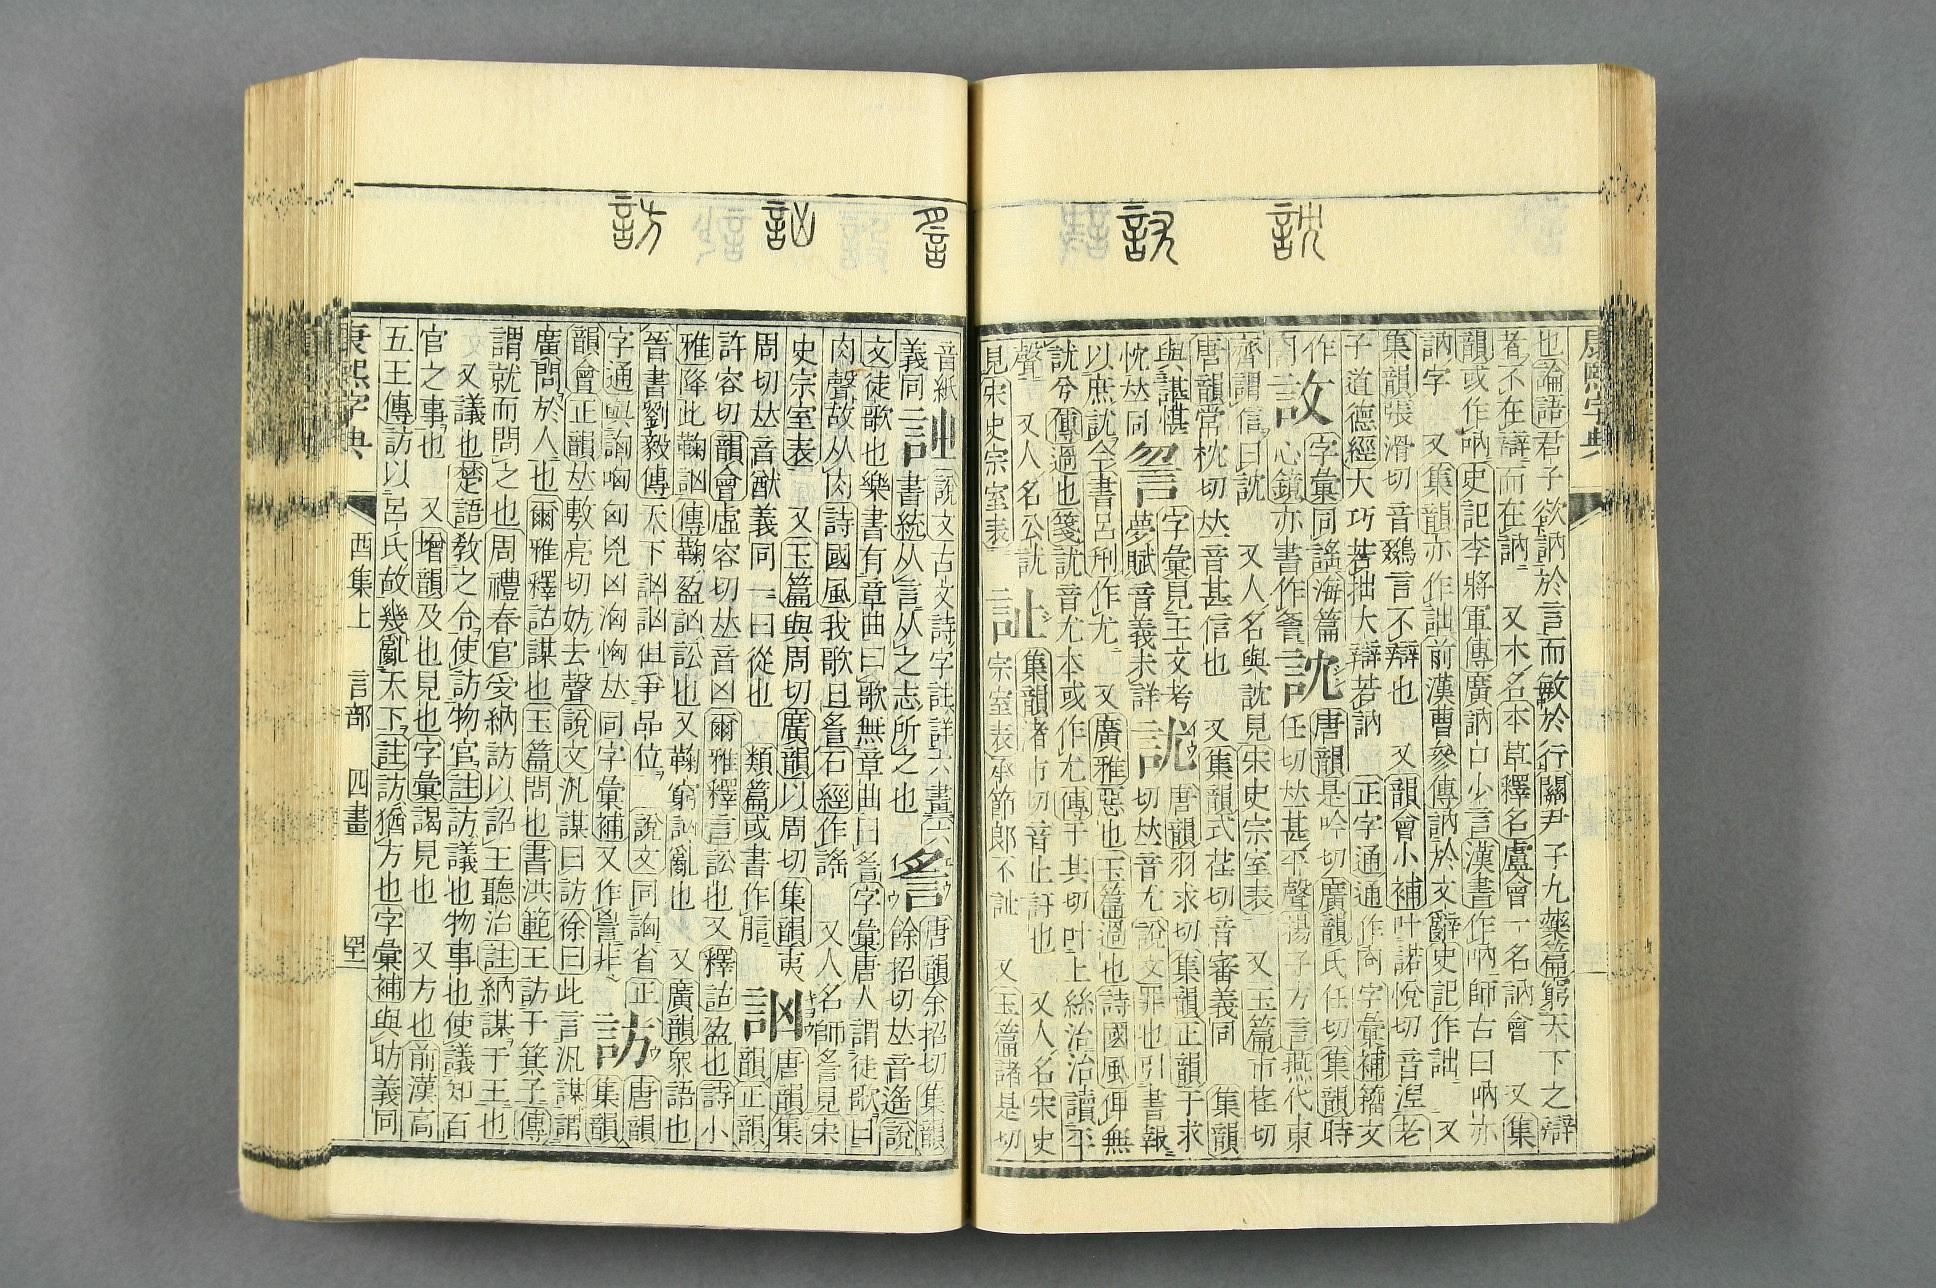 訦
訧
康熙字典
也論語君子欲訥於言而敏於行關尹子九藥篇窮天下之辯
者不在辯而在訥 又木名本草釋名盧會一名訥會 又集
韻或作吶史記李將軍傳廣訥口少言漢書作吶師古曰吶亦
訥字 又集韻亦作詘前漢曹參傳訥於文辭史記作詘 又
集韻張滑切音鵽言不辯也 又韻會小補叶諾悅切音涅老
子道德經大巧若拙大辯若訥 正字通通作㕯字彙補籀文
作 字彙同謠海篇 唐韻是吟切廣韻氏任切集韻時
同 心鏡亦書作䚻 訦 任切𠀤甚平聲揚子方言燕代東
齊謂信曰訦 又人名與訦見宋史宗室表 又玉篇市荏切
唐韻常枕切𠀤音甚信也 又集韻式荏切音審義同 集韻
與諶愖 字彙見王文考 訧 唐韻羽求切集韻正韻于求
忱𠀤同 夢賦音義未詳 切𠀤音尤說文罪也引書報
以庶訧今書呂刑作尤 又廣雅惡也玉篇過也詩國風俾無
訧兮傳過也箋訧音尤本或作尤傳于其切叶上絲治治讀平
聲 又人名公訧 訨 集韻諸市切音止訐也 又人名宋史
見宋史宗室表 宗室表承節郎不訨 又玉篇諸是切
䚻
訩
訪
音紙 說文古文詩字註詳六畫 䚻 唐韻余招切集韻
義同 書統从言从之志所之也 餘招切𠀤音遙說
文徒歌也樂書有章曲曰歌無章曲曰䚻字彙唐人謂徒歌曰
肉聲故从肉詩國風我歌且䚻石經作謠 又人名師䚻見宋
史宗室表 又玉篇與周切廣韻以周切集韻夷 訩 唐韻集
周切𠀤音猷義同一曰從也 類篇或書作 韻正韻
許容切韻會虛容切𠀤音凶爾雅釋言訟也又釋詁盈也詩小
雅降此鞠訩傳鞠盈訩訟也又鞠窮訩亂也 又廣韻衆語也
晉書劉毅傳天下訩訩但爭品位 說文同詾省正 唐韻
字通與詾哅匈兇凶洶恟𠀤同字彙補又作 非 訪 集韻
韻會正韻𠀤敷亮切妨去聲說文汎謀曰訪徐曰此言汎謀謂
廣問於人也爾雅釋詁謀也玉篇問也書洪範王訪于箕子傳
謂就而問之也周禮春官受納訪以詔王聽治註納謀于王也
又議也楚語敎之令使訪物官註訪議也物事也使議知百
官之事也 又增韻及也見也字彙謁見也 又方也前漢高
五王傳訪以呂氏故幾亂天下註訪猶方也字彙補與昉義同
康熙字典 酉集上 言部 四畫